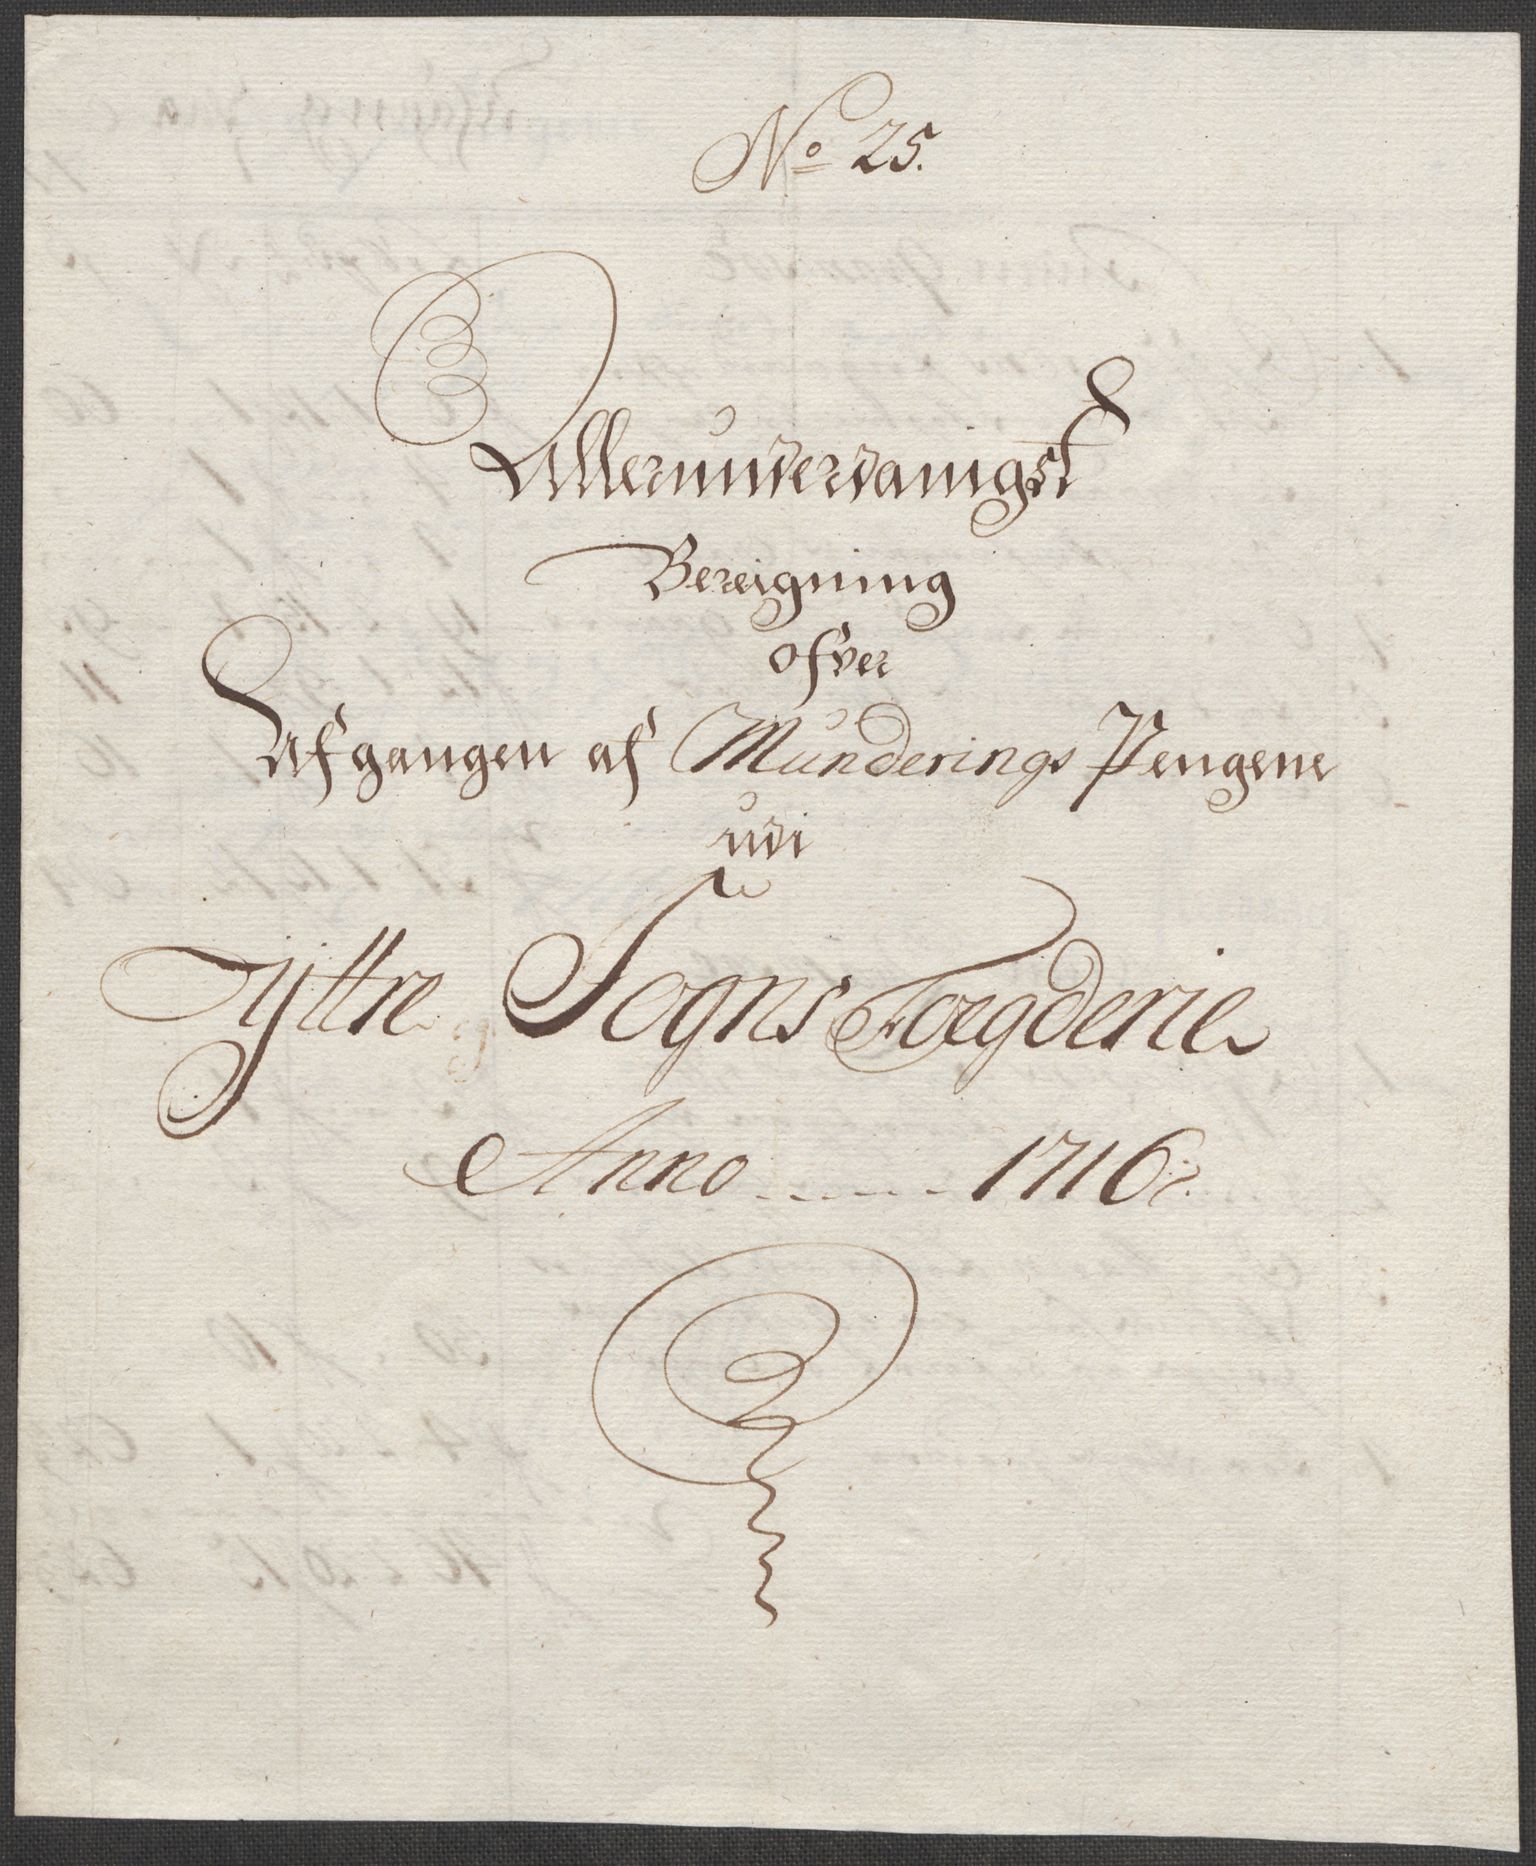 No 25.
Allerunderdanigst
Bereigning
ofver
Afgangen af Munderings Pengene
udi
Yttre Sogns Foegderie
Anno ...... 1716.